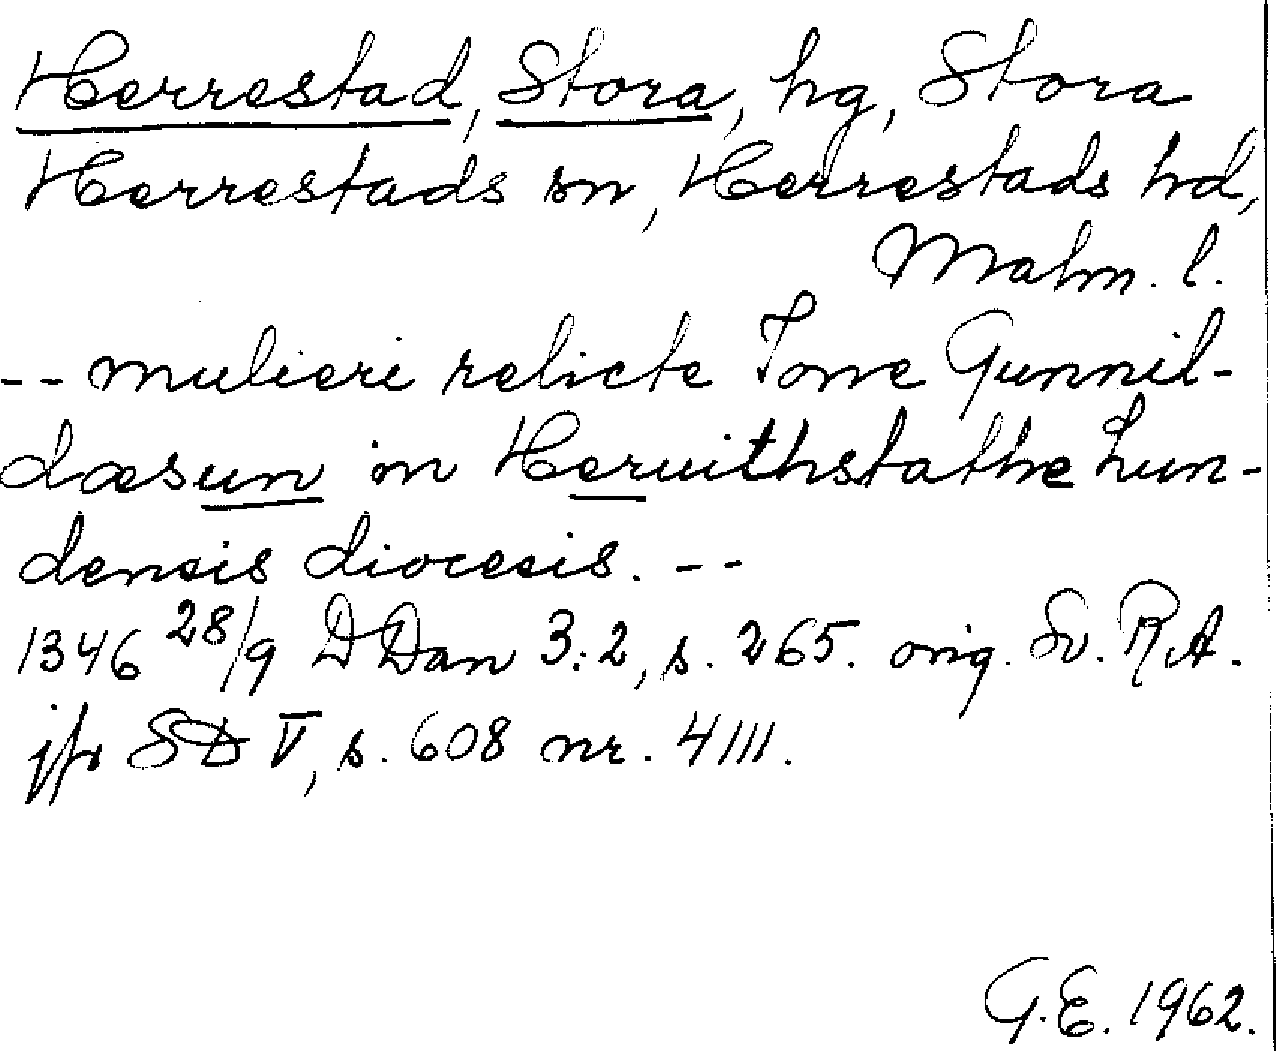 Herrestad, Stora, hg, Stora
Herrestads sn, Herrestads hd,
Malm. l.
-- mulieri relicte Tove Gunnil-
dæsun in Heruithstathe Lun-
densis diocesis. --
1346 28/9 DDan 3:2, s. 265. orig. Sv. R.A.
jfr SD V, s. 608 nr. 4111.
G.E. 1962.